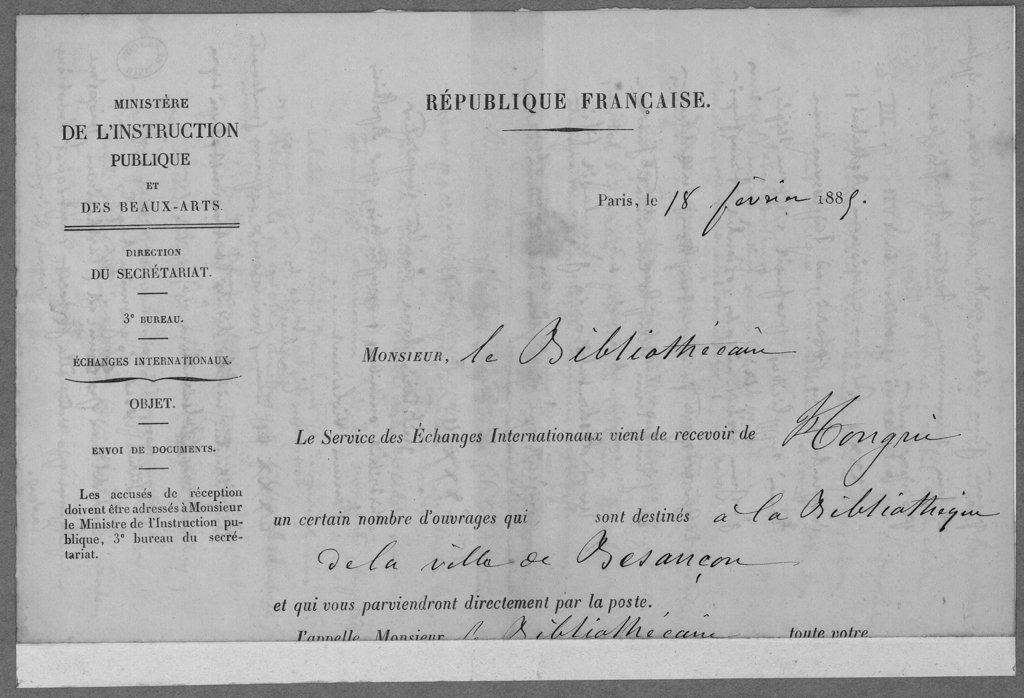 MINISTÈRE
DE L'INSTRUCTION
PUBLIQUE
ET
DES BEAUX-ARTS.
DIRECTION
DU SECRÉTARIAT.
3e BUREAU.
ÉCHANGES INTERNATIONAUX.
OBJET.
ENVOI DE DOCUMENTS.
Les accusés de réception
doivent être adressés à Monsieur
le Ministre de l'Instruction pu-
blique, 3e bureau du secré-
tariat.
RÉPUBLIQUE FRANÇAISE.
Paris, le 18 février 1885.
MONSIEUR, le Bibliothécaire
Le Service des Échanges Internationaux vient de recevoir de Hongrie
un certain nombre d'ouvrages qui sont destinés à la Bibliothèque
de la ville de Besançon
et qui vous parviendront directement par la poste.
J'appelle, Monsieur le Bibliothécaire toute votre